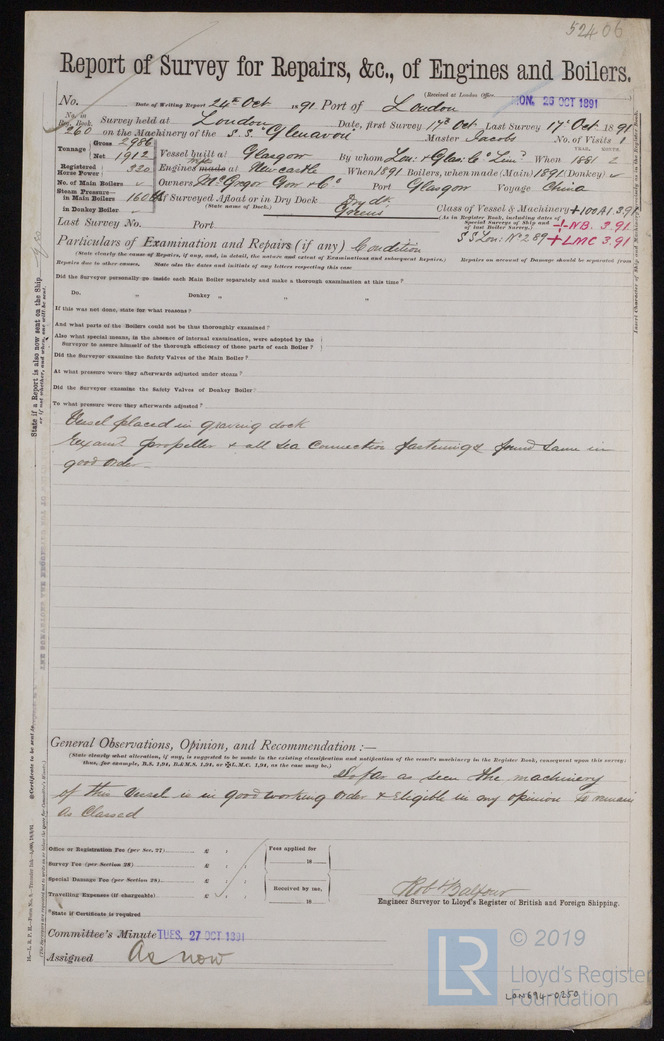 52406
Report of Survey for Repairs, &c., of Engines and Boilers.
(Received at London Office
No. Date of Writing Report 24th Oct 1891 Port of London MON. 26 OCT 1891
No. in Reg. Book. Survey held at London Date, first Survey 17th Oct Last Survey 17th Oct 1891
260 on the Machinery of the S.S. "Glenavon" Master Jacobs No. of Visits 1
Tonnage Gross 2986 Net 1912
Vessel built at Glasgow By whom Lon: & Glas: Co Lim: When 1881 2
YEAR. MONTH.
Registered Horse Power 320 Engines made at Newcastle When 1891 Boilers, when made (Main) 1891 (Donkey) ✓
No. of Main Boilers ✓ Owners McGregor Gow & Co Port Glasgow Voyage China
Steam Pressure— in Main Boilers 160 lbs If Surveyed Afloat or in Dry Dock Dry dk.
(State name of Dock.) Greens
in Donkey Boiler ✓
Class of Vessel & Machinery +100A1.3.91
(As in Register Book, including dates of Special Surveys of Ship and of last Boiler Survey.) +NB. 3.91
Last Survey No. Port
S S Lon: No 2 89 +LMC 3.91
Particulars of Examination and Repairs (if any) Condition
(State clearly the cause of Repairs, if any, and, in detail, the nature and extent of Examinations and subsequent Repairs.) Repairs on account of Damage should be separated from
Repairs due to other causes. State also the dates and initials of any letters respecting this case
Did the Surveyor personally go inside each Main Boiler separately and make a thorough examination at this time?
Do. " Donkey " " "
If this was not done, state for what reasons?
And what parts of the Boilers could not be thus thoroughly examined?
Also what special means, in the absence of internal examination, were adopted by the
Surveyor to assure himself of the thorough efficiency of these parts of each Boiler?
Did the Surveyor examine the Safety Valves of the Main Boiler?
At what pressure were they afterwards adjusted under steam?
Did the Surveyor examine the Safety Valves of Donkey Boiler?
To what pressure were they afterwards adjusted?
Vessel placed in graving dock
Examd propeller & all sea connection fastenings found same in
good order
General Observations, Opinion, and Recommendation :—
(State clearly what alteration, if any, is suggested to be made in the existing classification and notification of the vessel's machinery in the Register Book, consequent upon this survey;
thus, for example, B.S. 1,91, B.&M.S. 1,91, or ✠L.M.C. 1,91, as the case may be.)
So far as seen the machinery
of this Vessel is in good working order & Eligible in my opinion to remain
as Classed
Office or Registration Fee (per Sec. 27) £ : :
Survey Fee (per Section 28) £ : :
Special Damage Fee (per Section 28) £ : :
Travelling Expenses (if chargeable) £ : :
Fees applied for
18
Received by me,
18
*State if Certificate is required
Robt Balfour
Engineer Surveyor to Lloyd's Register of British and Foreign Shipping.
Committee's Minute TUES. 27 OCT 1891
Assigned As now
State if a Report is also now sent on the Ship
or if not whether, and when, one will be sent.
LR
© 2019
Lloyd's Register
Foundation
LON694-0250